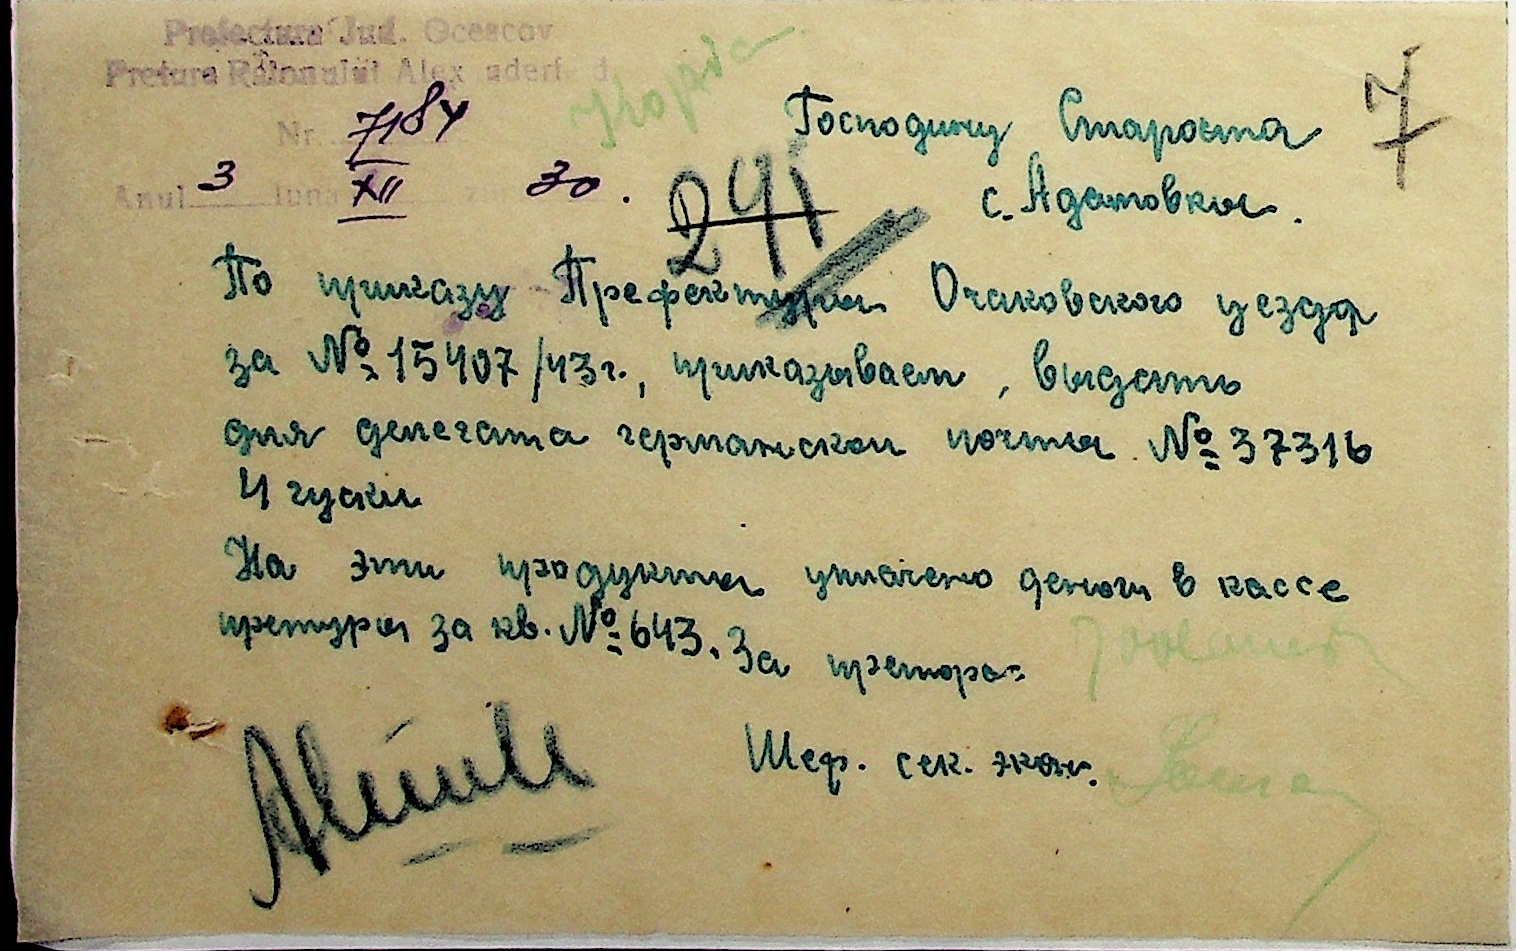 Prefectura Jud. Oceacov
Pretura Raionului Alex
Nr. 7184
Anul 3 luna XII 30.
Копія
7
291
Господину Староста
с. Адамовкы.
По приказу Префектуры Очаковского уезда
за № 15407/43г., приказываем, выдать
для делегата германской почты № 37316
4 гуски
На эти продукты уплачено деньги в кассе
претуры за кв. № 643. За претора=
Шеф. сек. экон.